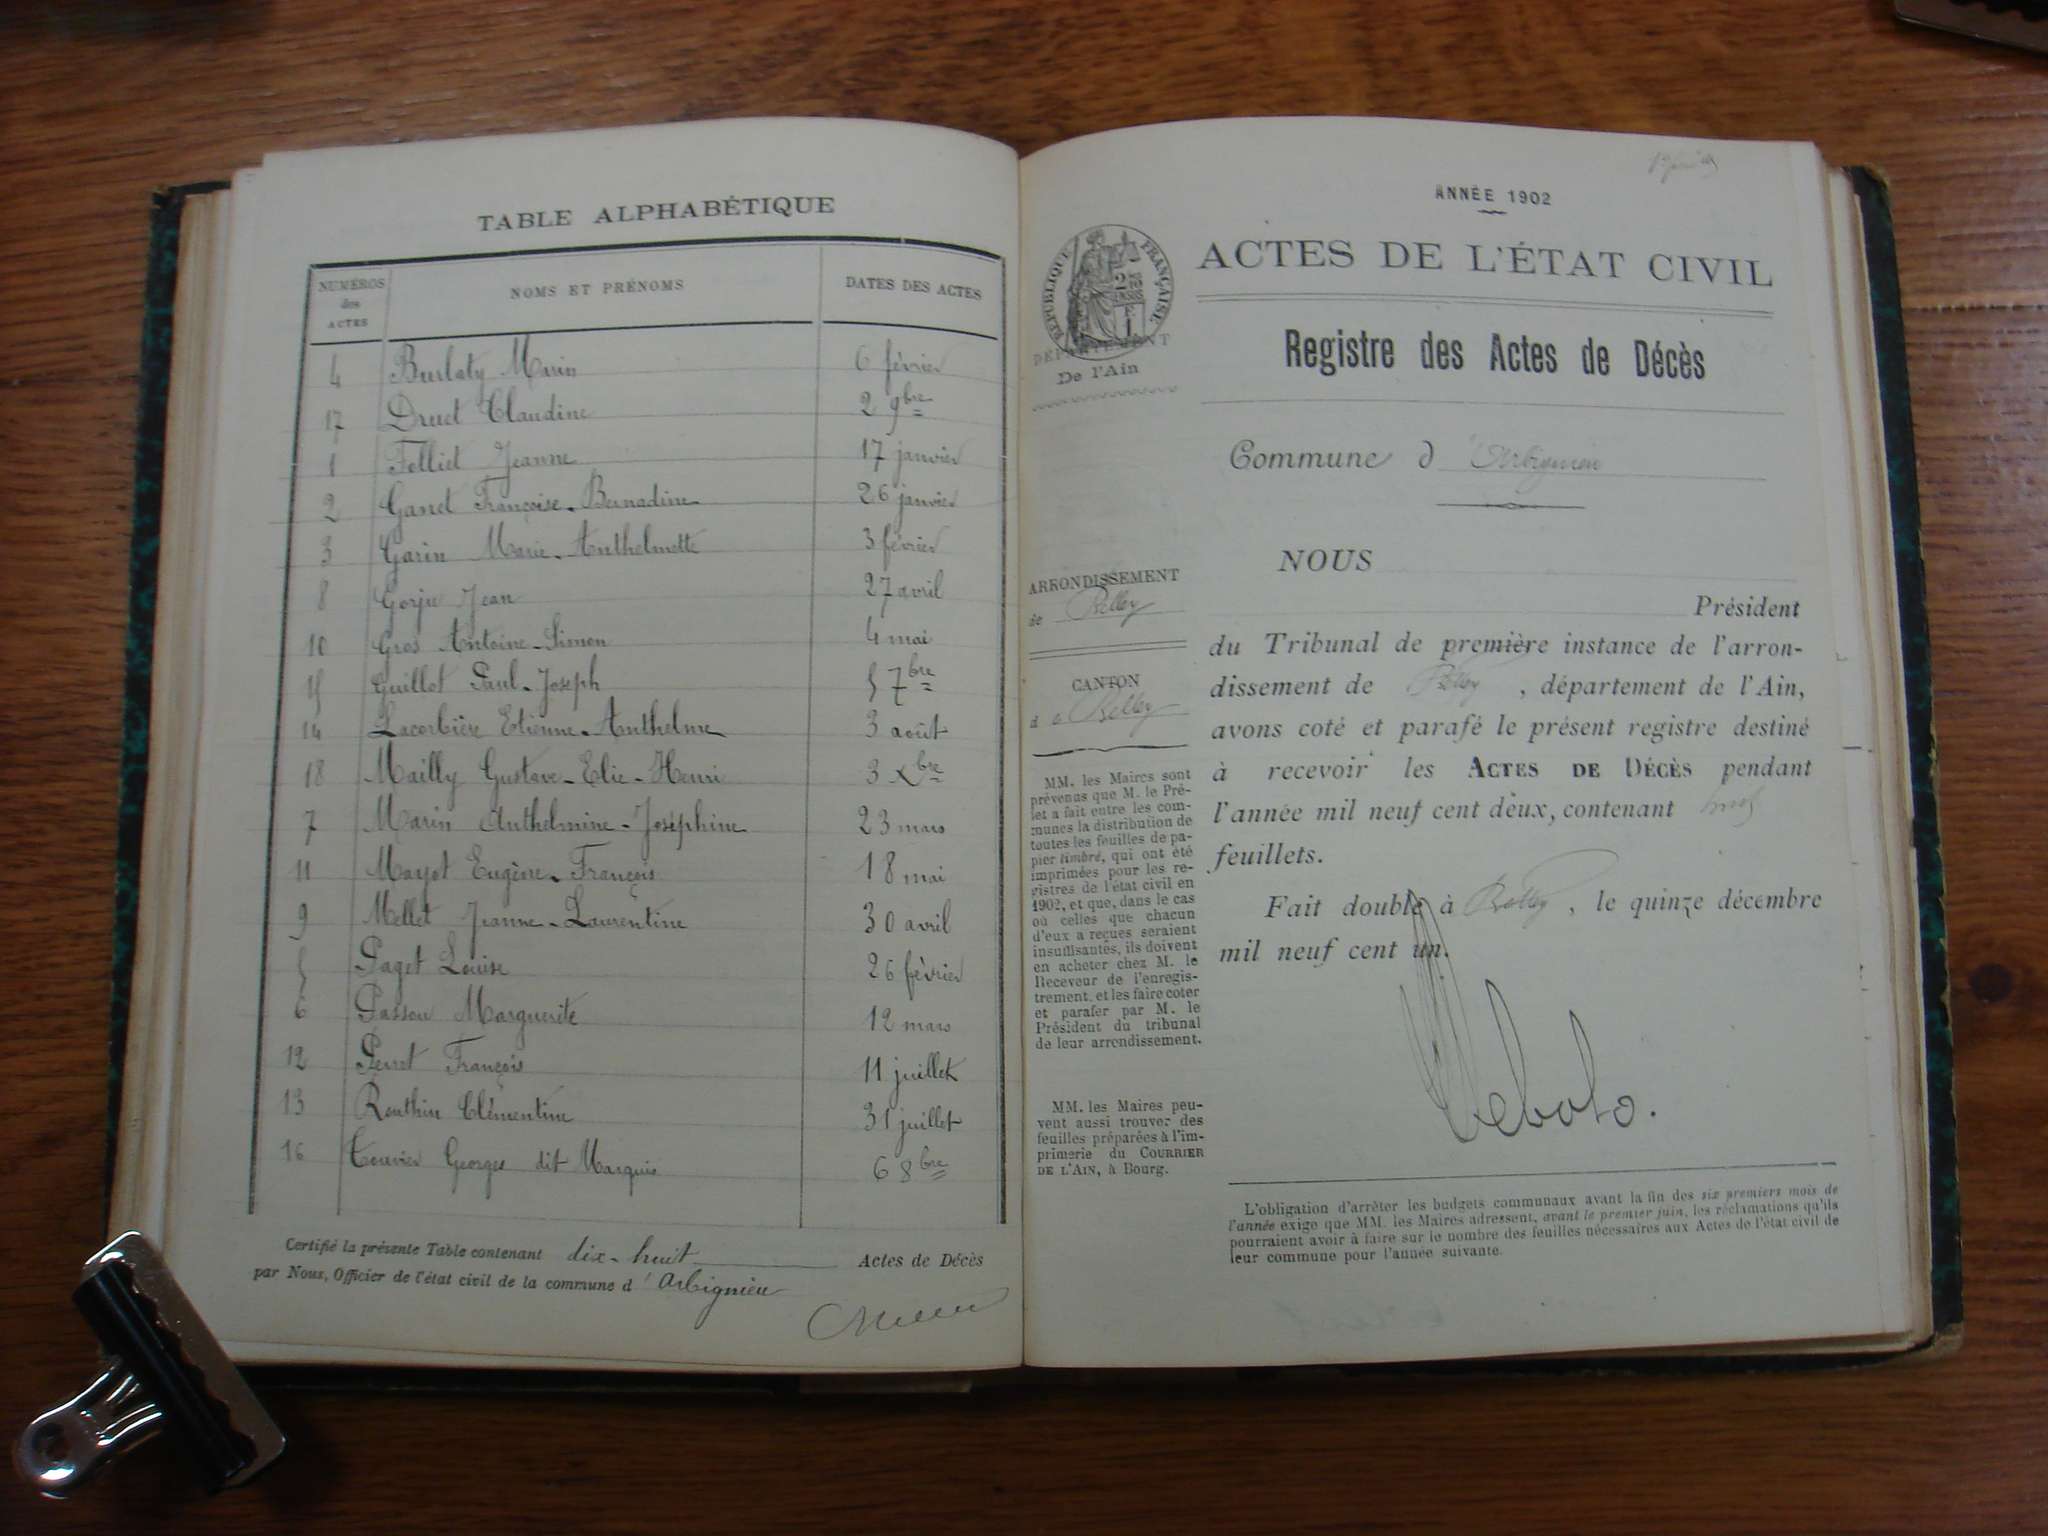 TABLE ALPHABÉTIQUE
NUMÉROS des ACTES NOMS ET PRÉNOMS DATES DES ACTES
4 Burlaty Marin 6 février
17 Druet Claudine 2 9bre
1 Felliet Jeanne 17 janvier
2 Ganet Françoise-Bernadine 26 janvier
3 Garin Marie-Anthelmette 3 février
8 Gorju Jean 27 avril
10 Gros Antoine-Simon 4 mai
15 Guillot Paul-Joseph 5 7bre
14 Lacorbière Etienne-Anthelme 3 août
18 Mailly Gustave-Elie-Henri 3 Xbre
7 Marin Anthelmine-Joséphine 23 mars
11 Mayot Eugène-François 18 mai
9 Mellet Jeanne-Laurentine 30 avril
5 Paget Louise 26 février
6 Passou Marguerite 12 mars
12 Perret François 11 juillet
13 Routhin Clémentine 31 juillet
16 Touvier Georges dit Marquis 6 8bre
Certifié la présente Table contenant dix-huit Actes de Décès
par Nous, Officier de l'état civil de la commune d'Arbignieu
ANNÉE 1902
RÉPUBLIQUE FRANÇAISE
ACTES DE L'ÉTAT CIVIL
DÉPARTEMENT
De l'Ain
Registre des Actes de Décès
Commune d'Arbignieu
NOUS
ARRONDISSEMENT
de Belley
Président
du Tribunal de première instance de l'arron-
dissement de Belley, département de l'Ain,
avons coté et parafé le présent registre destiné
à recevoir les ACTES DE DÉCÈS pendant
l'année mil neuf cent deux, contenant
feuillets.
Fait double à Belley, le quinze décembre
mil neuf cent un.
CANTON
de Belley
MM. les Maires sont
prévenus que M. le Pré-
fet a fait entre les com-
munes la distribution de
toutes les feuilles de pa-
pier timbré, qui ont été
imprimées pour les re-
gistres de l'état civil en
1902, et que, dans le cas
où celles que chacun
d'eux a reçues seraient
insuffisantes, ils doivent
en acheter chez M. le
Receveur de l'enregis-
trement, et les faire coter
et parafer par M. le
Président du tribunal
de leur arrondissement.
MM. les Maires peu-
vent aussi trouver des
feuilles préparées à l'im-
primerie du COURRIER
DE L'AIN, à Bourg.
L'obligation d'arrêter les budgets communaux avant la fin des six premiers mois de
l'année exige que MM. les Maires adressent, avant le premier juin, les réclamations qu'ils
pourraient avoir à faire sur le nombre des feuilles nécessaires aux Actes de l'état civil de
leur commune pour l'année suivante.